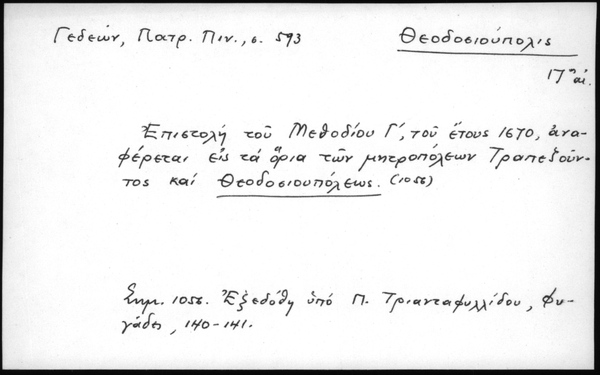 Γεδεών, Πατρ. Πιν., σ. 593
Θεοδοσιούπολις
17ος αἰ.
Ἐπιστολή τοῦ Μεθοδίου Γ΄, τοῦ ἔτους 1670, ἀνα-
φέρεται εἰς τά ὅρια τῶν μητροπόλεων Τραπεζοῦν-
τος καί Θεοδοσιουπόλεως. (1056)
Σημ. 1056. Ἐξεδόθη ὑπό Π. Τριανταφυλλίδου, Φυ-
γάδες, 140-141.